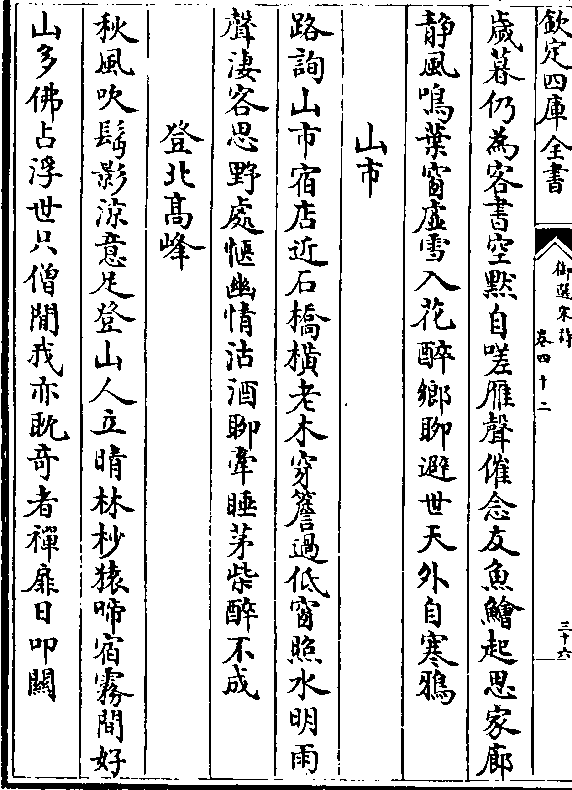 欽定四庫全書
御選宋詩
卷四十二
三十六
歲暮仍為客書空黙自嗟雁聲催念友魚鱠起思家廊
静風鳴葉窗虛雪入花醉鄉聊避世天外自寒鴉
山市
路詢山市宿店近石橋橫老木穿簷過低窗照水明雨
聲淒客思野處愜幽情沽酒聊牽睡茅柴醉不成
登北高峰
秋風吹髩影涼意足登山人立晴林杪猿啼宿霧間好
山多佛占浮世只僧閒我亦耽奇者禪扉日叩關